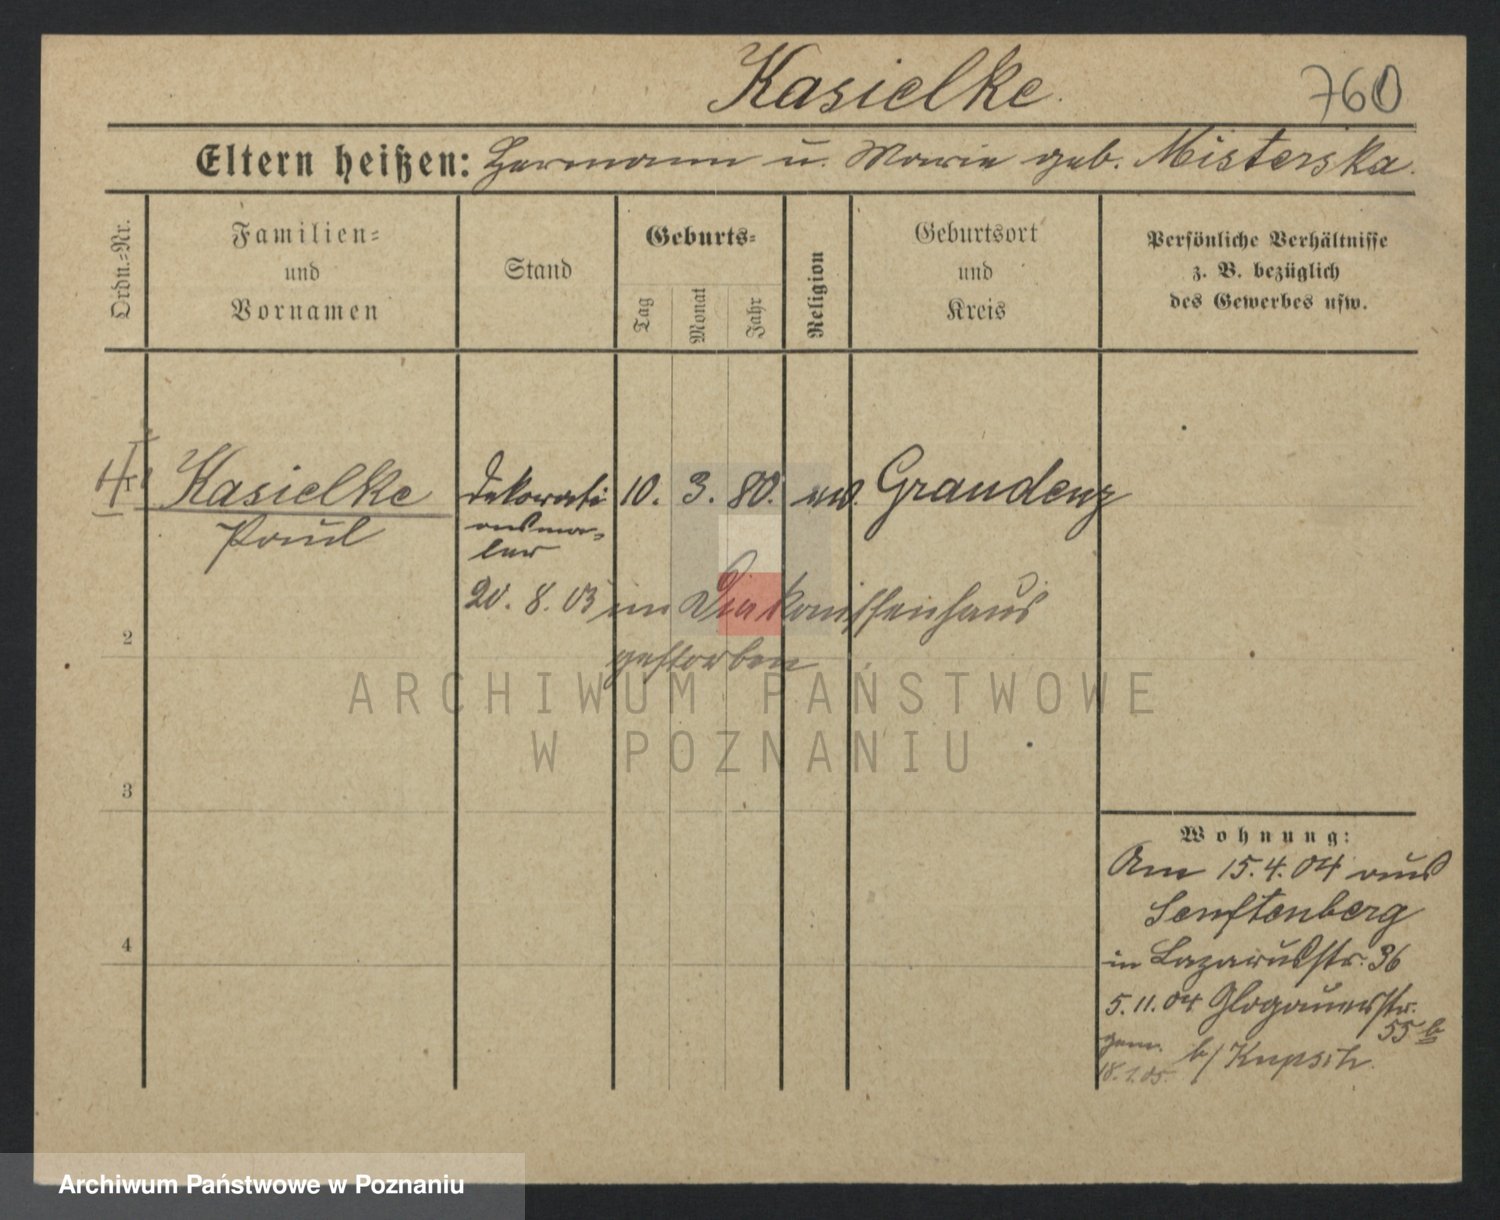 Kasielke.
760
Eltern heißen: Hermann u. Marie geb. Misterska.
Ordn.=Nr.
Familien=
und
Vornamen
Stand
Geburts=
Tag
Monat
Jahr
Religion
Geburtsort
und
Kreis
Persönliche Verhältnisse
z. B. bezüglich
des Gewerbes usw.
Kasielke
Paul
Dekorati
onsma=
ler
10. 3. 80. ev. Graudenz
20. 8. 05 im Diakonissenhaus
gestorben
2
3
4
ARCHIWUM PAŃSTWOWE
W POZNANIU
Wohnung:
Am 15.4.04 aus
Senftenberg
in Lazarusstr. 36
5.11.04 Glogauerstr.
55 b
b/ Kupsch
18.1.05.
Archiwum Państwowe w Poznaniu